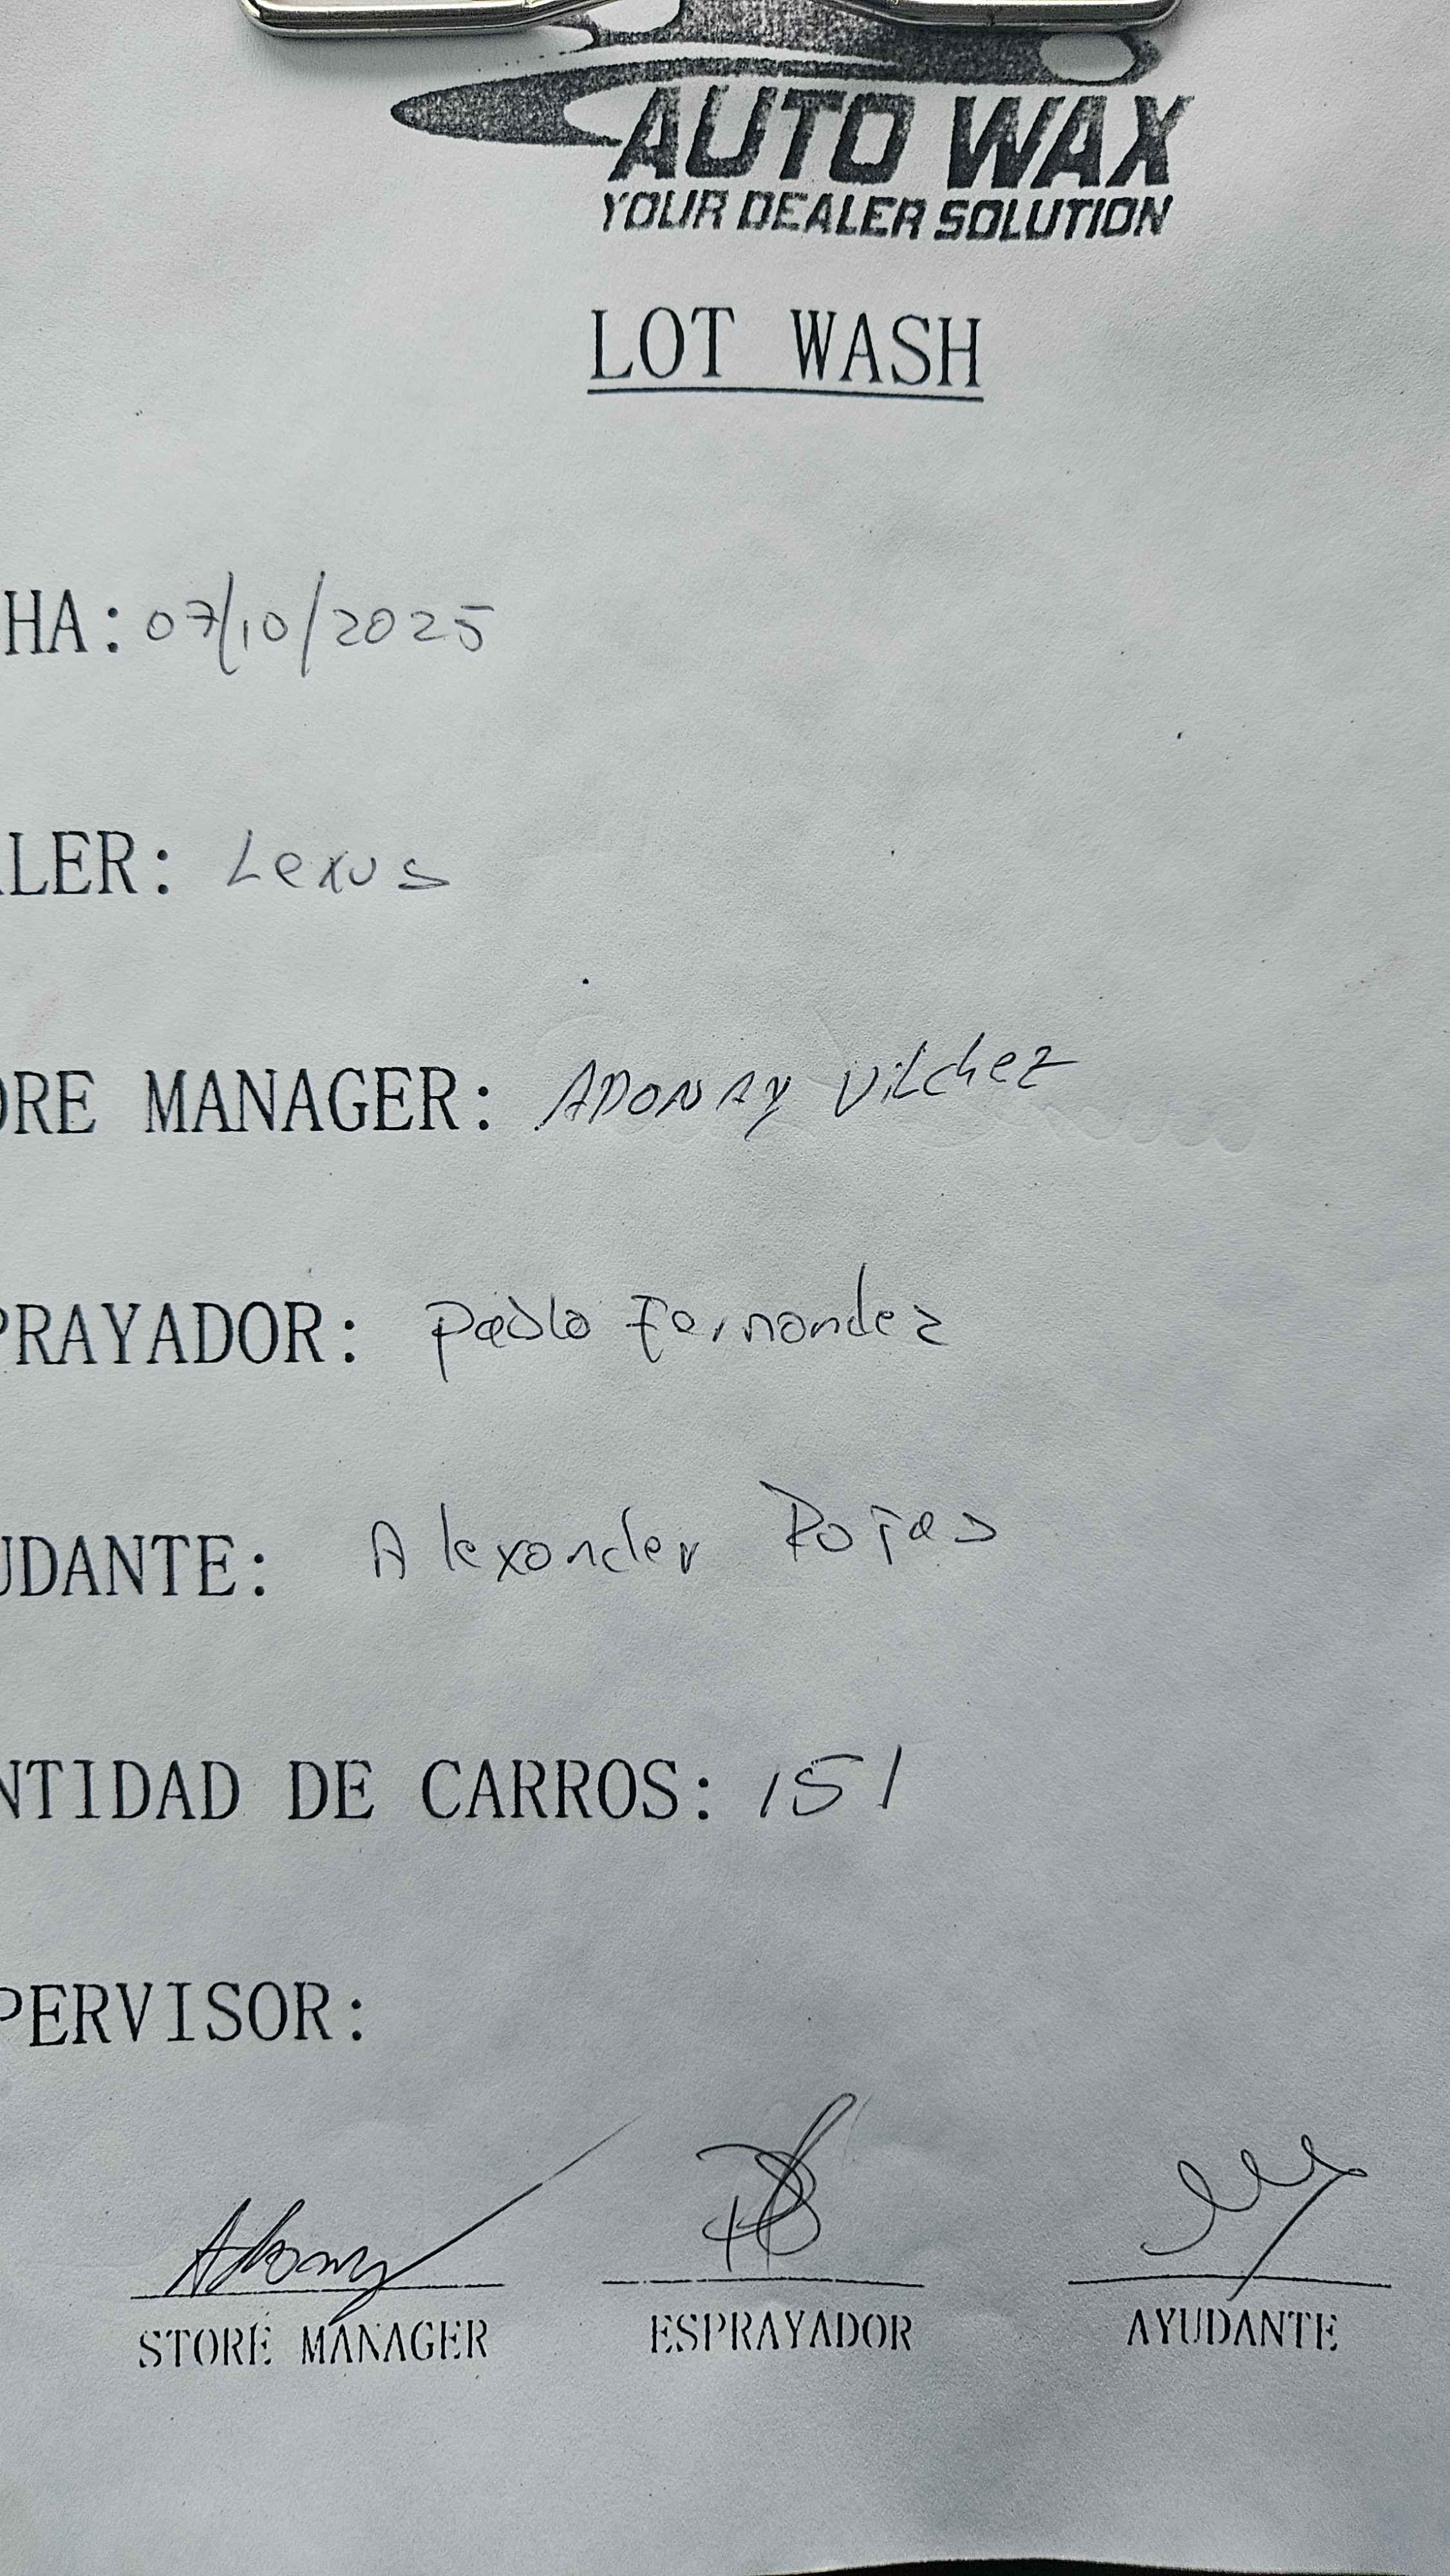 AUTO WAX
YOUR DEALER SOLUTION
LOT WASH
HA: 07/10/2025
LER: Lexus
ORE MANAGER: ADONAY VilcheZ
PRAYADOR: Pablo Fernandez
UDANTE: Alexander Rojas
NTIDAD DE CARROS: 151
PERVISOR:
STORE MANAGER ESPRAYADOR AYUDANTE